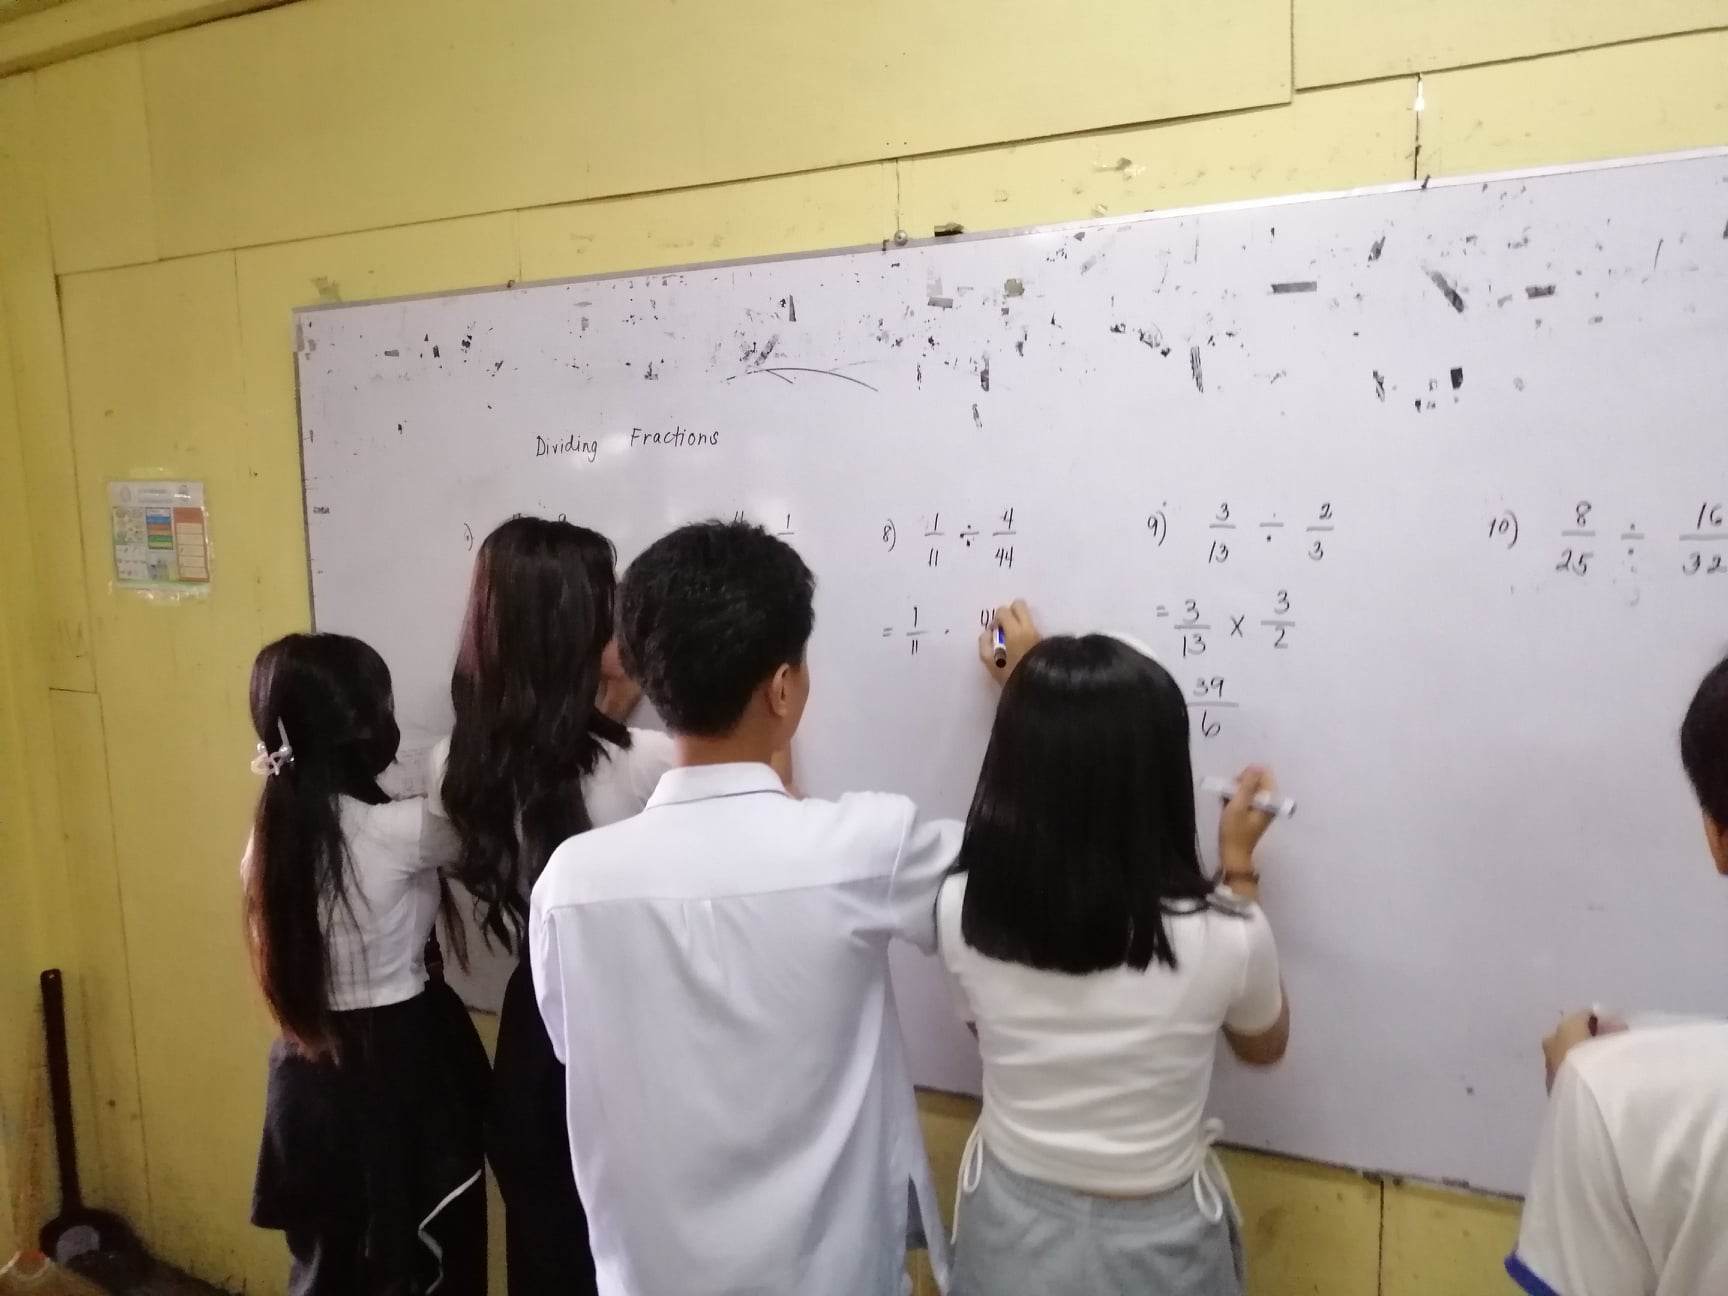 Dividing Fractions
8) 1/11 ÷ 4/44
= 1/11 ·
9) 3/13 ÷ 2/3
= 3/13 x 3/2
39/6
10) 8/25 ÷ 16/32